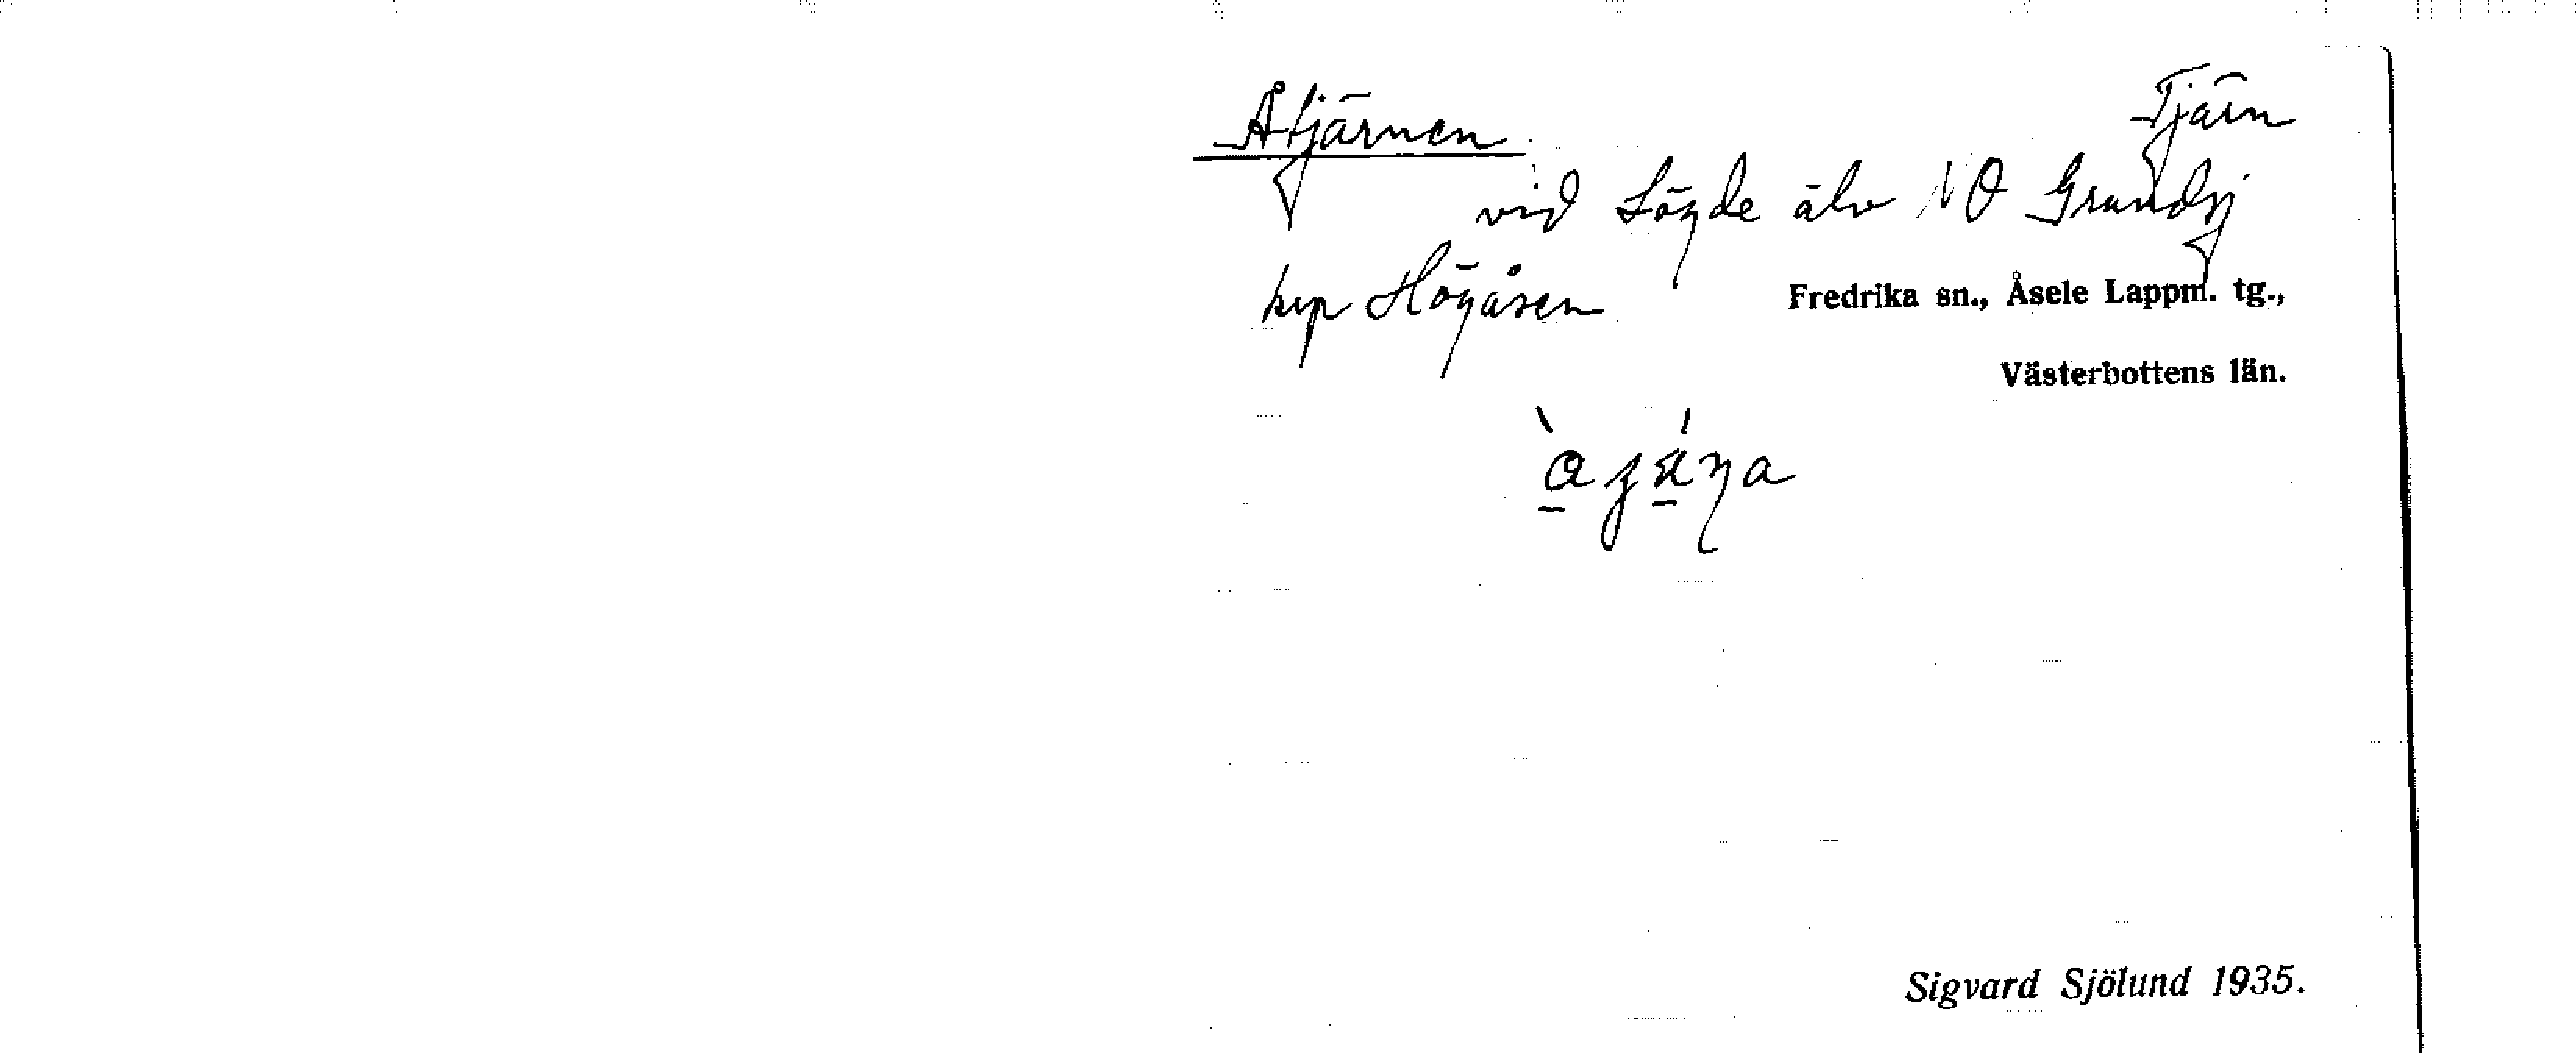 Åtjärnen Tjärn
vid Lögde älv NO Grundsj
hvp Högåsen Fredrika sn., Åsele Lappm. tg.,
Västerbottens län.
Sigvard Sjölund 1935.